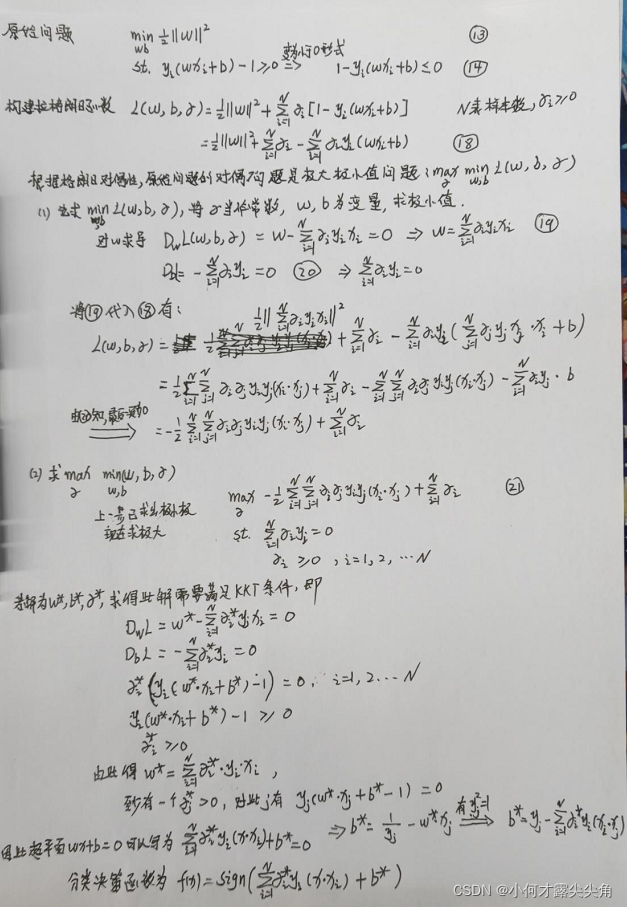 原始问题 min_{w,b} ½||w||² ⑬
st. y_i(wx_i+b)-1≥0 ⇒ 1-y_i(wx_i+b)≤0 ⑭
变小于0形式
构建拉格朗日函数 L(w,b,α)=½||w||²+∑_{i=1}^N α_i[1-y_i(wx_i+b)] N是样本数,α_i≥0
=½||w||²+∑_{i=1}^N α_i-∑_{i=1}^N α_i y_i(wx_i+b) ⑱
根据拉格朗日对偶性,原始问题的对偶问题是极大极小值问题:max_α min_{w,b} L(w,b,α)
(1) 先求 min_{w,b} L(w,b,α),将α当作常数,w,b为变量,求极小值.
对w求导 D_w L(w,b,α)=w-∑_{i=1}^N α_i y_i x_i=0 ⇒ w=∑_{i=1}^N α_i y_i x_i ⑲
D_b L=-∑_{i=1}^N α_i y_i=0 ⑳ ⇒ ∑_{i=1}^N α_i y_i=0
将⑲代入⑱有:
½||∑_{i=1}^N α_i y_i x_i||²
L(w,b,α)= +∑_{i=1}^N α_i-∑_{i=1}^N α_i y_i(∑_{j=1}^N α_j y_j x_j·x_i+b)
=½∑_{i=1}^N∑_{j=1}^N α_i α_j y_i y_j(x_i·x_j)+∑_{i=1}^N α_i-∑_{i=1}^N∑_{j=1}^N α_i α_j y_i y_j(x_i·x_j)-∑_{i=1}^N α_i y_i·b
由⑳知,最后一项为0 ⇒ =-½∑_{i=1}^N∑_{j=1}^N α_i α_j y_i y_j(x_i·x_j)+∑_{i=1}^N α_i
(2) 求 max_α min_{w,b}(w,b,α)
上一步已求出极小 max_α -½∑_{i=1}^N∑_{j=1}^N α_i α_j y_i y_j(x_i·x_j)+∑_{i=1}^N α_i ㉑
现在求极大 st. ∑_{i=1}^N α_i y_i=0
α_i≥0,i=1,2,…N
若解为w*,b*,α*,求得此解需要满足KKT条件,即
D_w L=w*-∑_{i=1}^N α_i* y_i x_i=0
D_b L=-∑_{i=1}^N α_i* y_i=0
α_i*(y_i(w*·x_i+b*)-1)=0, i=1,2…N
y_i(w*·x_i+b*)-1≥0
α_i*≥0
由此得 w*=∑_{i=1}^N α_i*·y_i·x_i,
至少有一个α_j*>0,对此j有 y_j(w*·x_j+b*-1)=0
⇒ b*=1/y_j-w*x_j 有y_j²=1 ⇒ b*=y_j-∑_{i=1}^N α_i* y_i(x_i·x_j)
因此超平面wx+b=0可以写为 ∑_{i=1}^N α_i* y_i(x·x_i)+b*=0
分类决策函数为 f(x)=sign(∑_{i=1}^N α_i* y_i(x·x_i)+b*)
CSDN @小何才露尖尖角